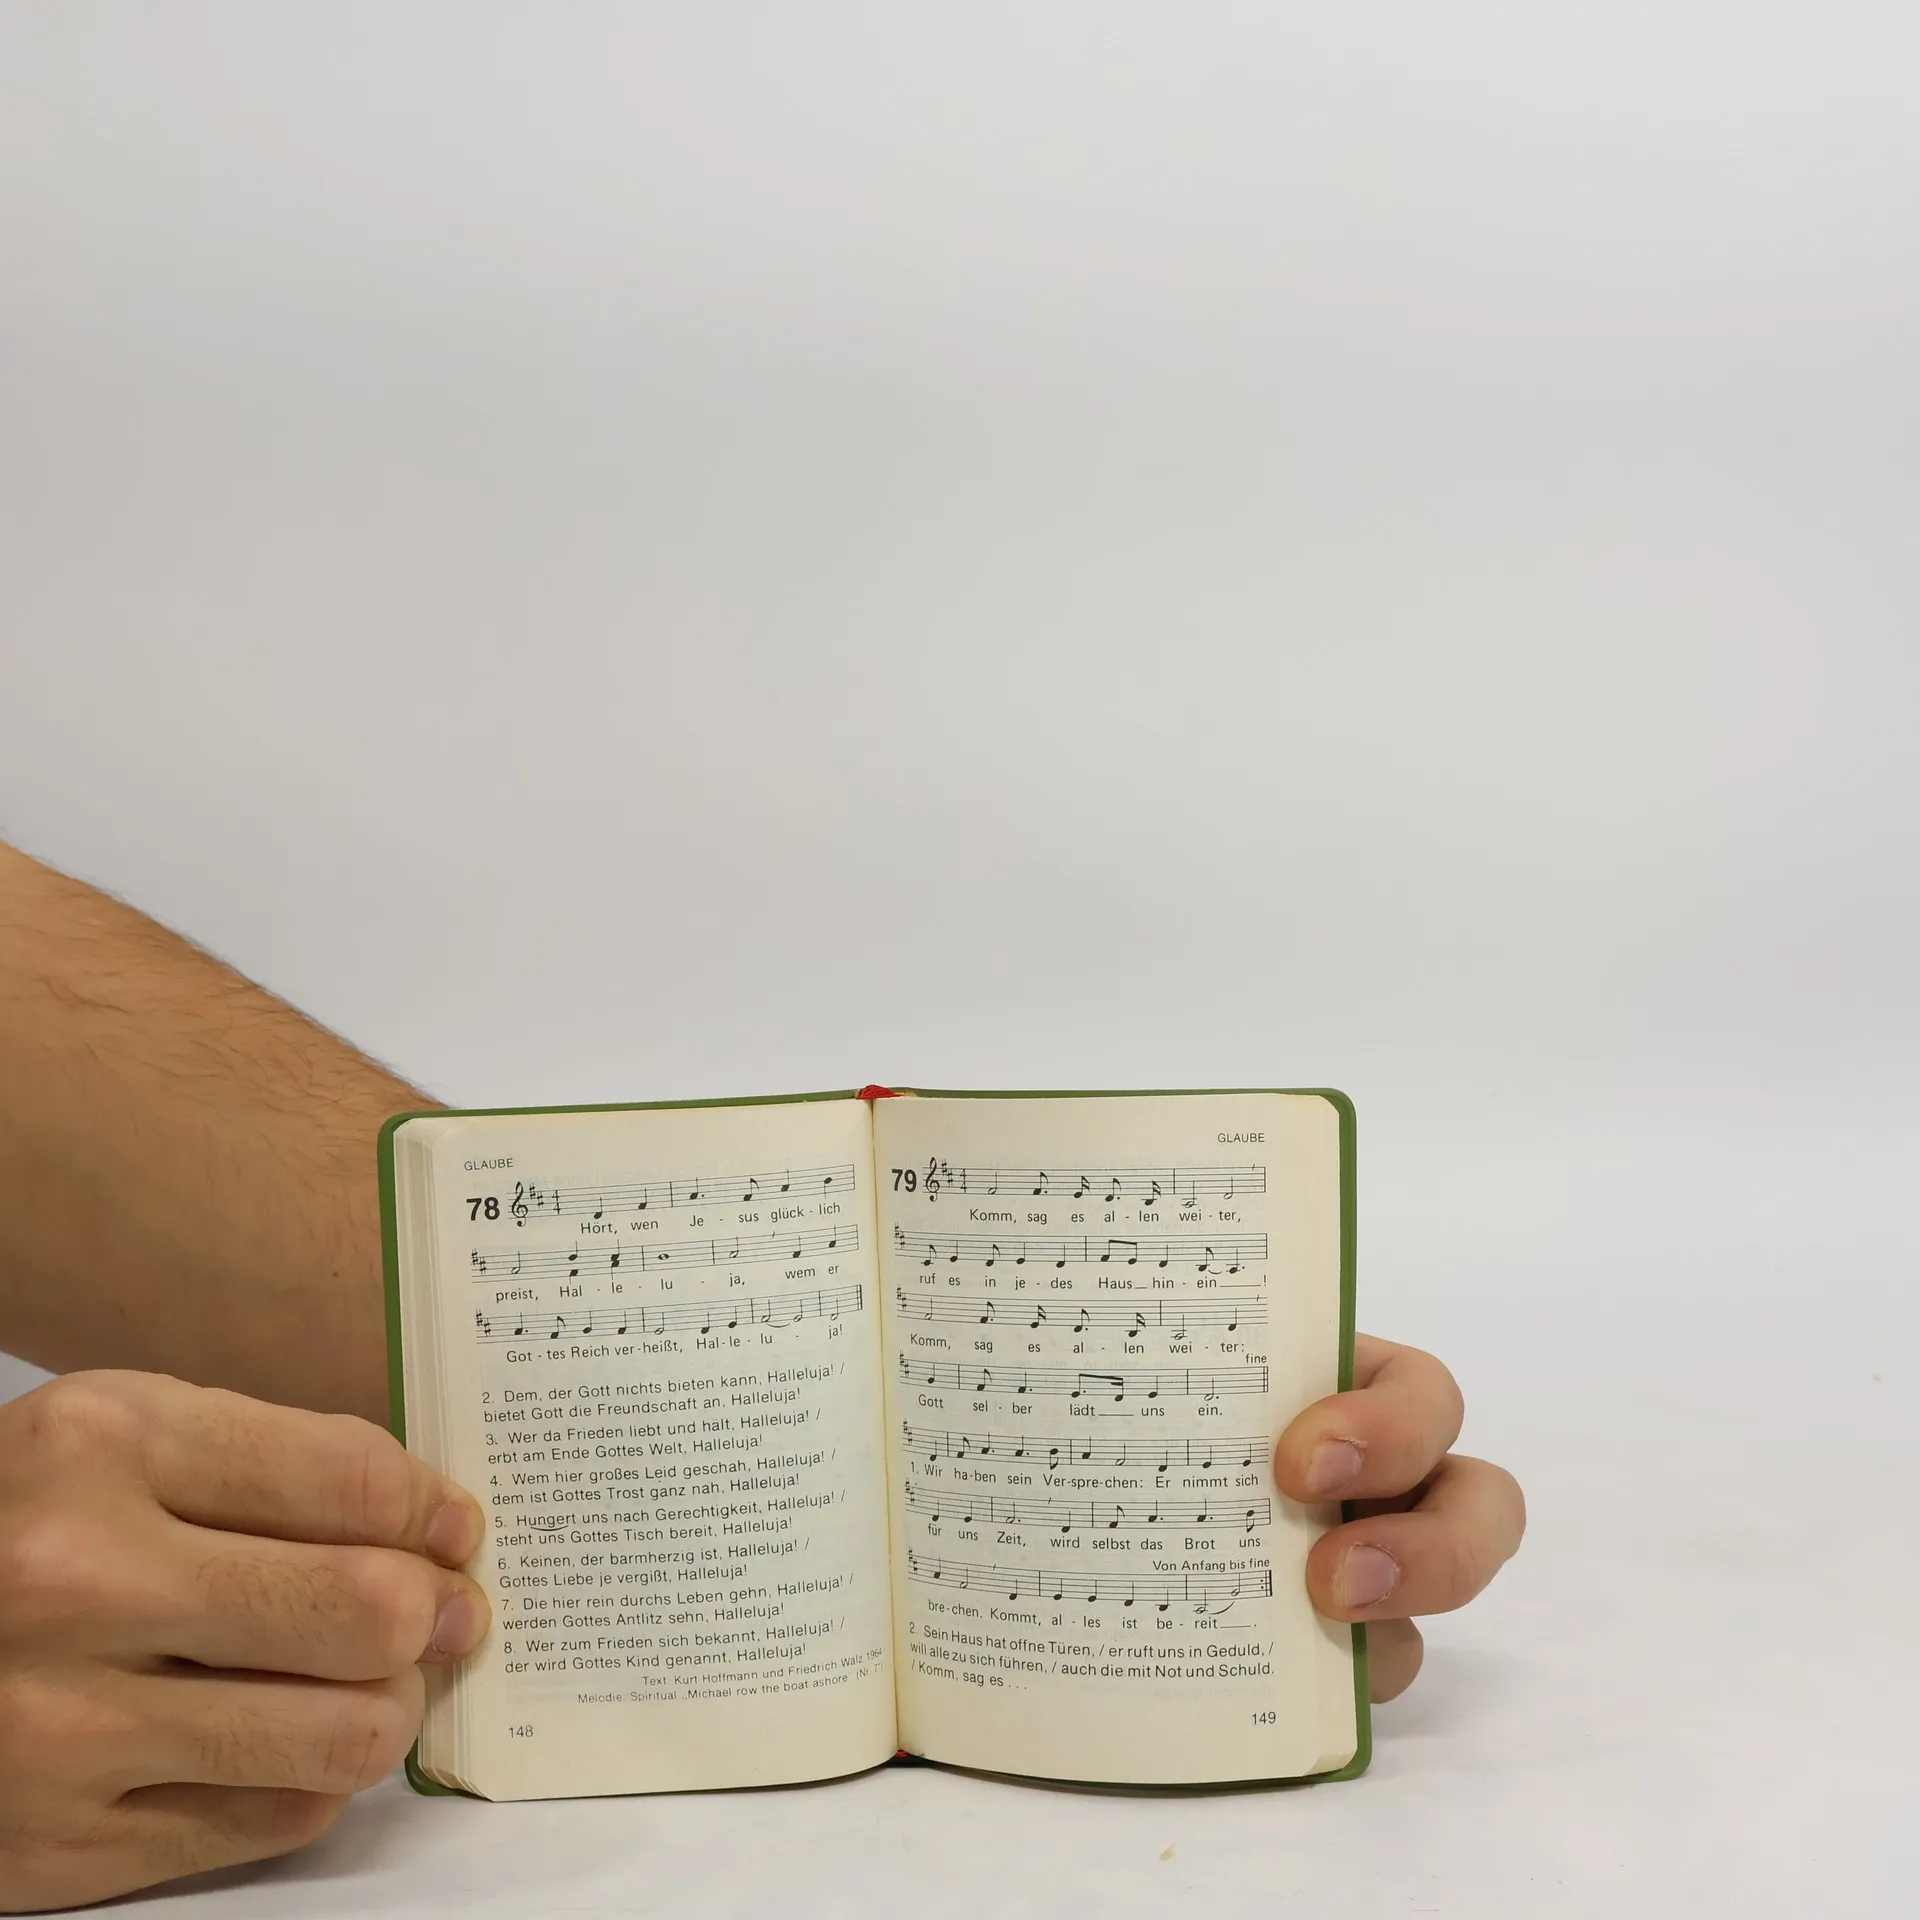 GLAUBE
78
Hört, wen Je - sus glück - lich
preist, Hal - le - lu - ja, wem er
Got - tes Reich ver - heißt, Hal - le - lu - ja!
2. Dem, der Gott nichts bieten kann, Halleluja! /
bietet Gott die Freundschaft an, Halleluja!
3. Wer da Frieden liebt und hält, Halleluja! /
erbt am Ende Gottes Welt, Halleluja!
4. Wem hier großes Leid geschah, Halleluja! /
dem ist Gottes Trost ganz nah, Halleluja!
5. Hungert uns nach Gerechtigkeit, Halleluja! /
steht uns Gottes Tisch bereit, Halleluja!
6. Keinen, der barmherzig ist, Halleluja! /
Gottes Liebe je vergißt, Halleluja!
7. Die hier rein durchs Leben gehn, Halleluja! /
werden Gottes Antlitz sehn, Halleluja!
8. Wer zum Frieden sich bekannt, Halleluja! /
der wird Gottes Kind genannt, Halleluja!
Text: Kurt Hoffmann und Friedrich Walz 1964
Melodie: Spiritual „Michael row the boat ashore" (Nr. 7")
148
GLAUBE
79
Komm, sag es al - len wei - ter,
ruf es in je - des Haus hin - ein !
Komm, sag es al - len wei - ter:
fine
Gott sel - ber lädt uns ein.
1. Wir ha-ben sein Ver-spre-chen: Er nimmt sich
für uns Zeit, wird selbst das Brot uns
Von Anfang bis fine
bre-chen. Kommt, al - les ist be - reit .
2. Sein Haus hat offne Türen, / er ruft uns in Geduld, /
will alle zu sich führen, / auch die mit Not und Schuld.
/ Komm, sag es . . .
149